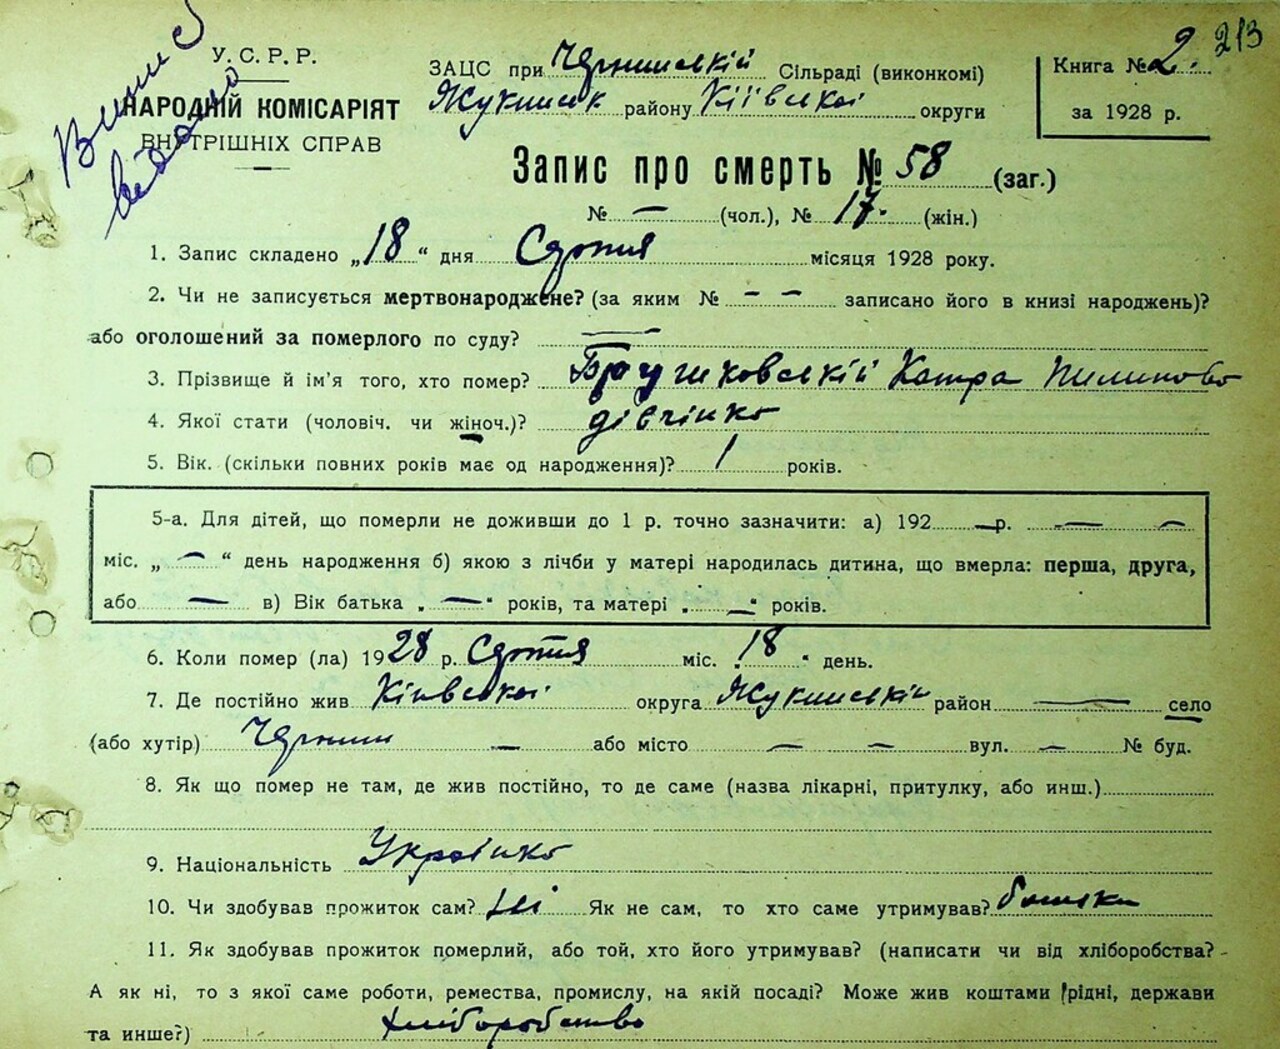 213
Випис
видано
У. С. Р. Р.
НАРОДНІЙ КОМІСАРІЯТ
ВНУТРІШНІХ СПРАВ
ЗАЦС при Чернинській Сільраді (виконкомі)
Жукинськ району Київської округи
Книга № 2.
за 1928 р.
Запис про смерть № 58 (заг.)
№ — (чол.), № 17. (жін.)
1. Запис складено „18“ дня Серпня місяця 1928 року.
2. Чи не записується мертвонароджене? (за яким № – – записано його в книзі народжень)?
або оголошений за померлого по суду? —
3. Прізвище й ім'я того, хто помер? Катра Пилипово
4. Якої стати (чоловіч. чи жіноч.)? дівчінка
5. Вік. (скільки повних років має од народження)? 1 років.
5-а. Для дітей, що померли не доживши до 1 р. точно зазначити: а) 192 — р. — —
міс. „ — “ день народження б) якою з лічби у матері народилась дитина, що вмерла: перша, друга,
або — в) Вік батька „ — “ років, та матері „ — “ років.
6. Коли помер (ла) 1928 р. Серпня міс. „18“ день.
7. Де постійно жив Київської округа Жукинській район — село
(або хутір) Чернин — або місто — — вул. — № буд.
8. Як що помер не там, де жив постійно, то де саме (назва лікарні, притулку, або инш.)
9. Національність Українка
10. Чи здобував прожиток сам? Ні Як не сам, то хто саме утримував? батьки
11. Як здобував прожиток померлий, або той, хто його утримував? (написати чи від хліборобства?
А як ні, то з якої саме роботи, ремества, промислу, на якій посаді? Може жив коштами рідні, держави
та инше?) хліборобство